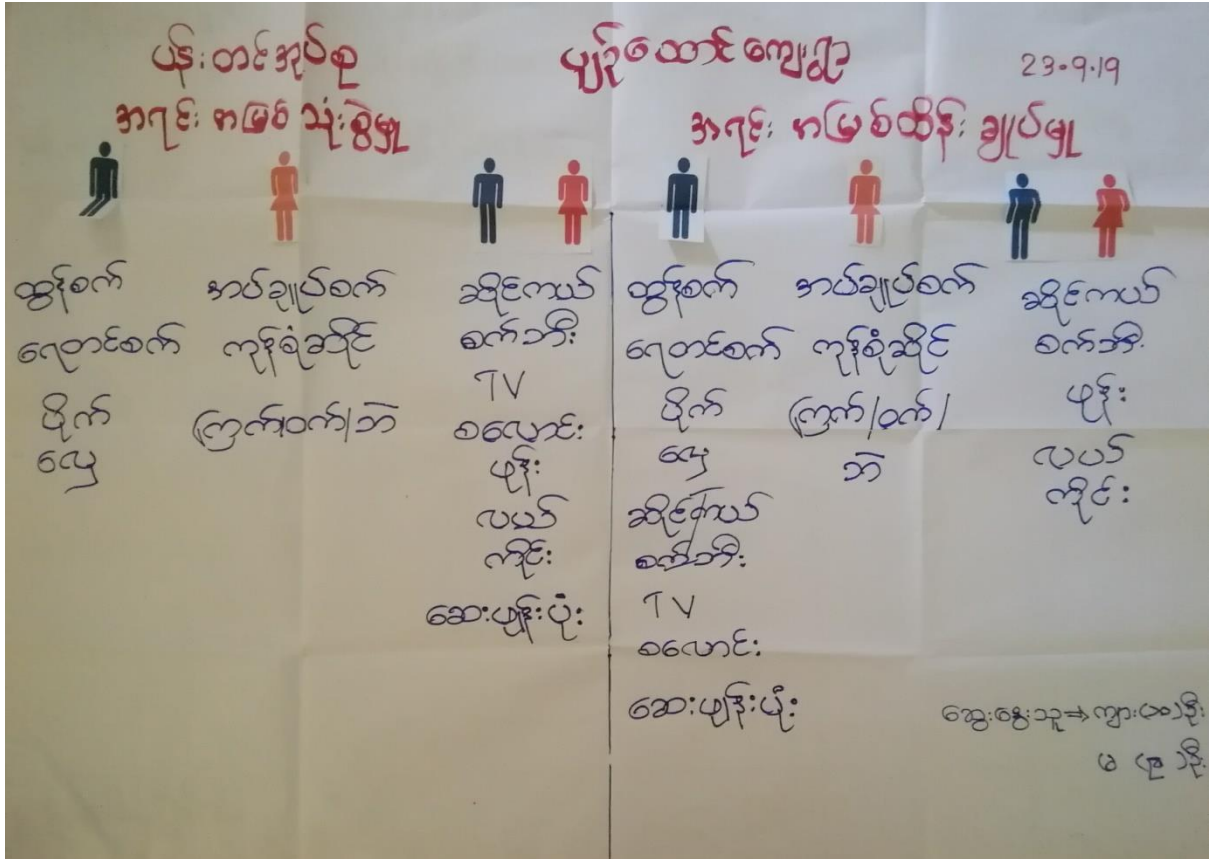 ပန်းတင်အုပ်စု
ပျဉ်ထောင်ကျေးရွာ
23.9.19
အရင်းအမြစ်သုံးစွဲမှု
အရင်းအမြစ်ထိန်းချုပ်မှု
ထွန်စက်
ရေတင်စက်
ဖိုက်
လှေ
အပ်ချုပ်စက်
ကုန်စုံဆိုင်
ကြက်/ဝက်/ဘဲ
ဆိုင်ကယ်
စက်ဘီး
TV
စလောင်း
ဖုန်း
လယ်
ကိုင်း
ဆေးဖျန်းပုံး
ထွန်စက်
ရေတင်စက်
ဖိုက်
လှေ
ဆိုင်ကယ်
စက်ဘီး
TV
စလောင်း
ဆေးဖျန်းပုံး
အပ်ချုပ်စက်
ကုန်စုံဆိုင်
ကြက်/ဝက်/
ဘဲ
ဆိုင်ကယ်
စက်ဘီး
ဖုန်း
လယ်
ကိုင်း
ဆွေးနွေးသူ⇒ကျား
မ